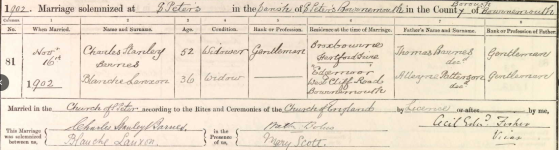 1902. Marriage solemnized at St Peters in the parish of St Peters Bournemouth in the County Borough of Bournemouth
1 2 3 4 5 6 7 8
No. When Married. Name and Surname. Age. Condition. Rank or Profession. Residence at the time of Marriage. Father's Name and Surname. Rank or Profession of Father.
81 Novr 16th 1902 Charles Stanley Barnes 52 Widower Gentleman Broxbourne Hertfordshire Thomas Barnes decd Gentleman
Blanche Lawson 36 Widow Edgemoor West Cliff Road Bournemouth Patterson decd Gentleman
Married in the Church of St Peter according to the Rites and Ceremonies of the Church of England by Licence or after by me,
This Marriage was solemnized between us, Charles Stanley Barnes Blanche Lawson in the Presence of us, Mary Scott. Cecil Fisher Vicar